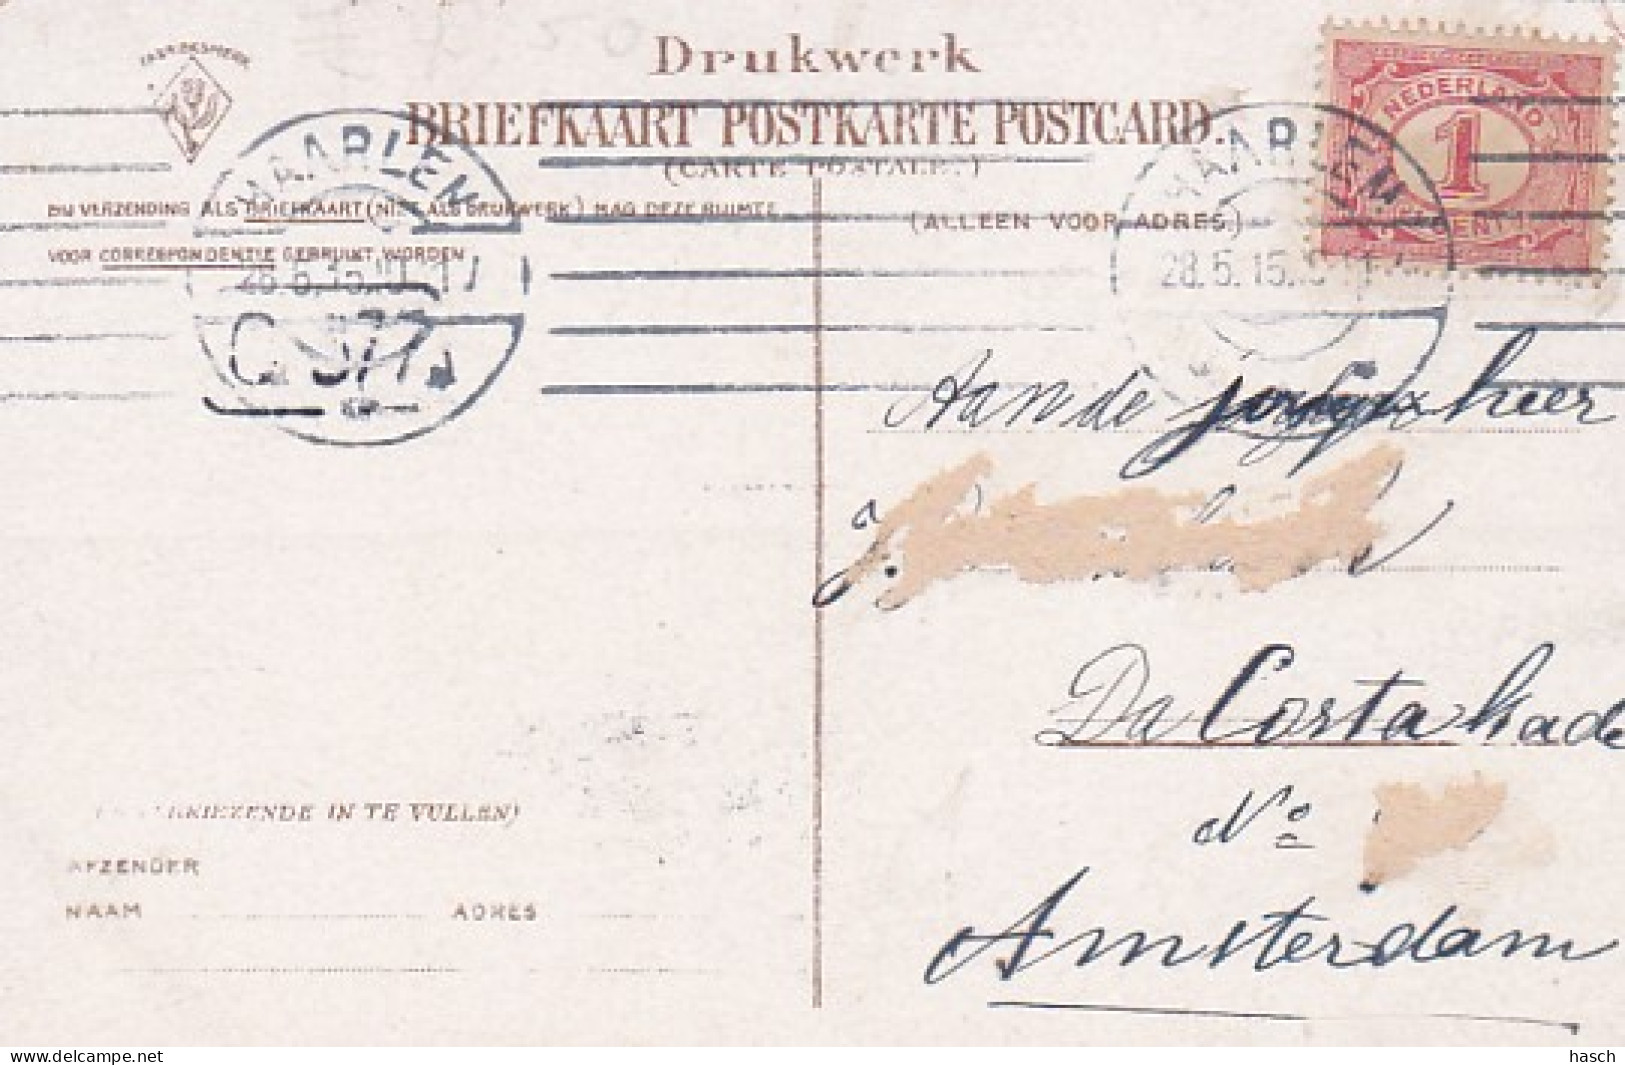 FABRIEKSMERK
Drukwerk
BRIEFKAART POSTKARTE POSTCARD.
(CARTE POSTALE.)
BIJ VERZENDING ALS BRIEFKAART (NIET ALS DRUKWERK) MAG DEZE RUIMTE
VOOR CORRESPONDENTIE GEBRUIKT WORDEN
(ALLEEN VOOR ADRES)
HAARLEM
HAARLEM
28.5.15
NEDERLAND
1
CENT
Aan de heer
J.
Da Costa kade
No
Amsterdam
IN TE VULLEN)
AFZENDER
NAAM ADRES
the next stamp on: www.delcampe.net
hasch